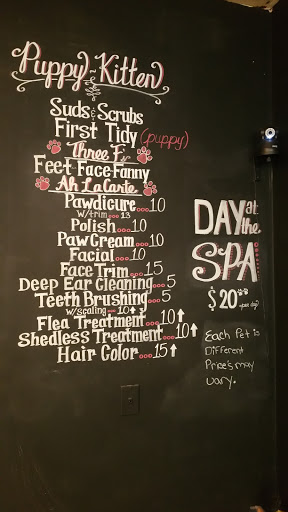 Puppy & Kitten
Suds & Scrubs
First Tidy (puppy)
Three F's
Feet-Face-Fanny
Ah La Carte
Pawdicure...10
w/trim...13
Polish...10
Paw Cream...10
Facial...10
Face Trim...15
Deep Ear Cleaning...5
Teeth Brushing...5
w/scaling...10↑
Flea Treatment...10↑
Shedless Treatment...10↑
Hair Color...15↑
DAY at the
SPA!
$20 per day
Each Pet is
Different
Price's may
vary.